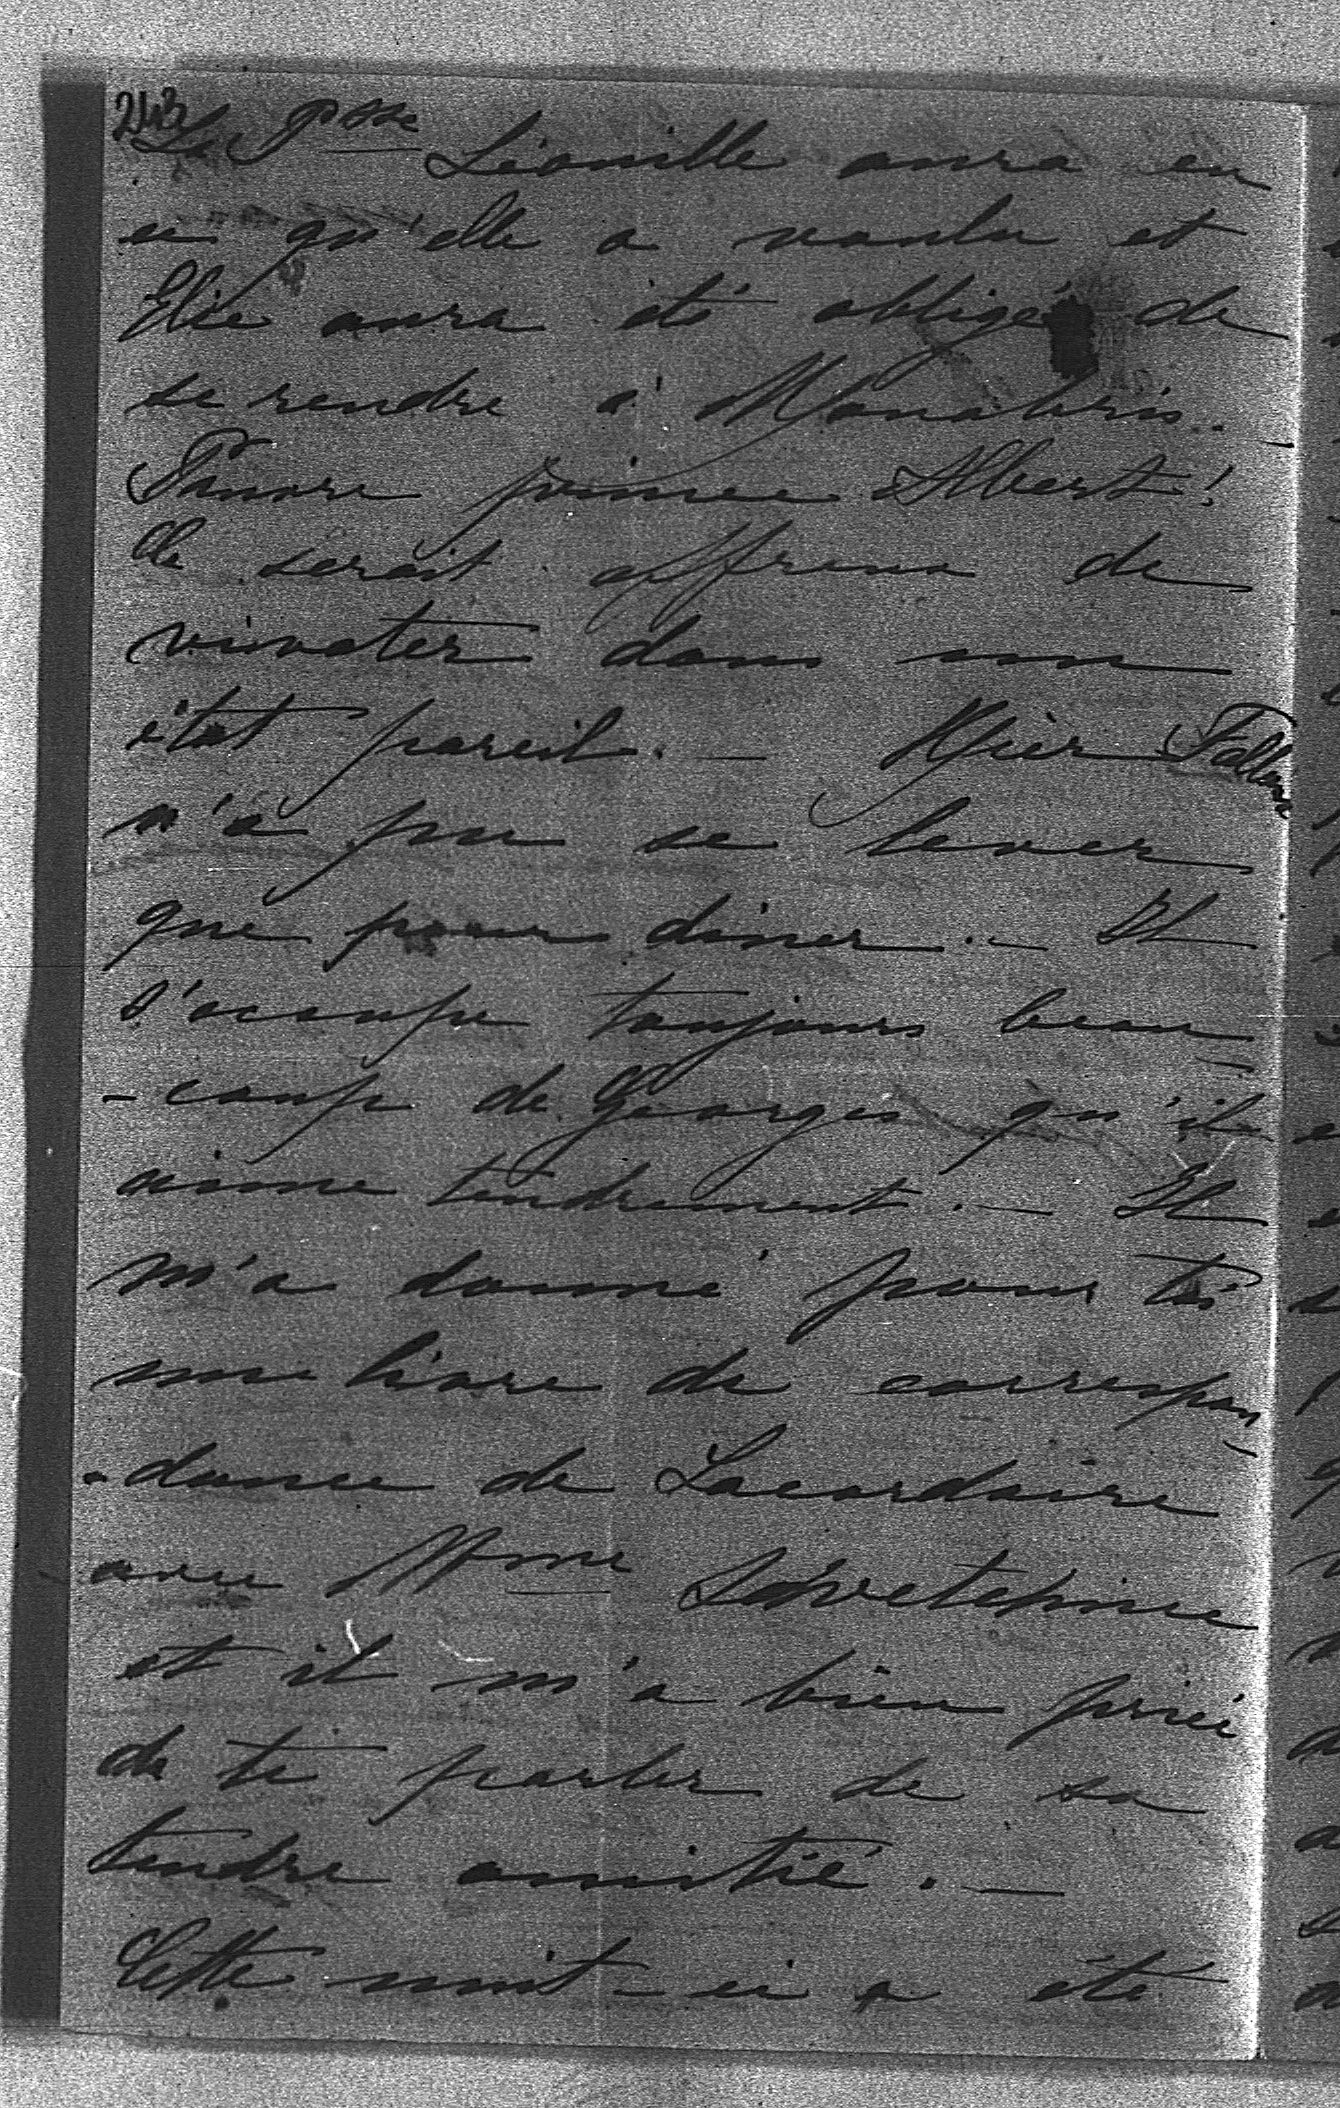 243
La Psse Léonille aura eu
ce qu'elle a voulu et
Elise aura été obligée de
se rendre à Monabri..
Pauvre prince Albert!
Ce serait affreux de
vivoter dans un
état pareil. — Hier Falloux
n'a pu se lever
que pour dîner. — Il
s'occupe toujours beau-
-coup de Georges qu'il
aime tendrement. — Il
m'a donné pour toi
une livre de correspon-
-dance de Lacordaire
avec Mme Swetchine
et il m'a bien priée
de te parler de sa
tendre amitié. —
Cette nuit-ci a été